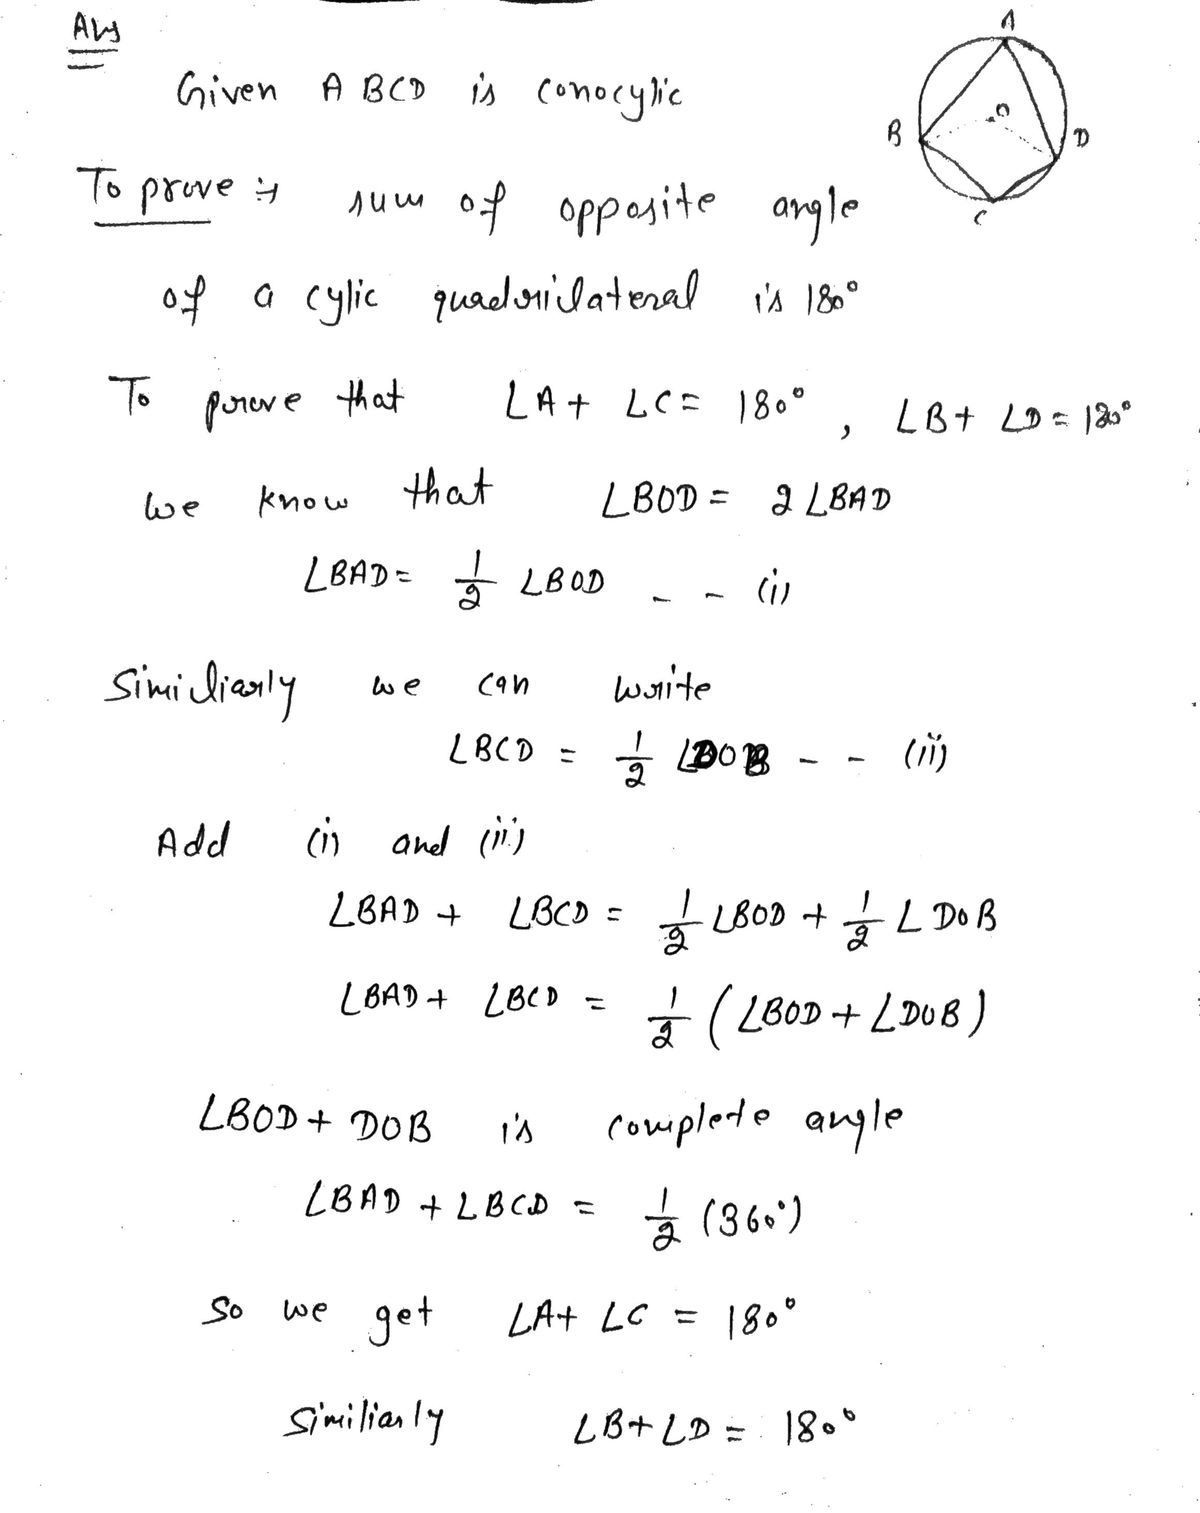 Ans
A
Given ABCD is conocylic
O
B
D
C
To prove :→ sum of opposite angle
of a cylic quadrilateral is 180°
To prove that ∠A + ∠C = 180° , ∠B + ∠D = 180°
We know that ∠BOD = 2 ∠BAD
∠BAD = 1/2 ∠BOD - - (i)
Similiarly we can write
∠BCD = 1/2 ∠DOB - - (ii)
Add (i) and (ii)
∠BAD + ∠BCD = 1/2 ∠BOD + 1/2 ∠DOB
∠BAD + ∠BCD = 1/2 (∠BOD + ∠DOB)
∠BOD + DOB is complete angle
∠BAD + ∠BCD = 1/2 (360°)
So we get ∠A + ∠C = 180°
Similiarly ∠B + ∠D = 180°